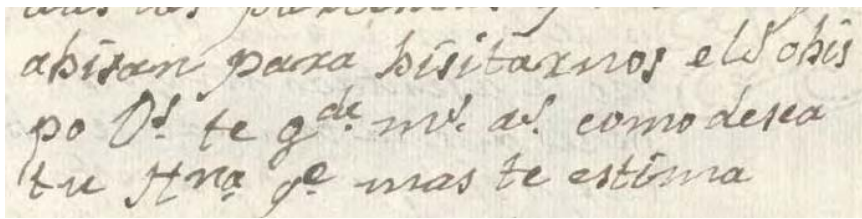 abisan para bisitarnos el S.r obis
po D.s te g.de m.s a.s como desea
tu H.na q.e mas te estima